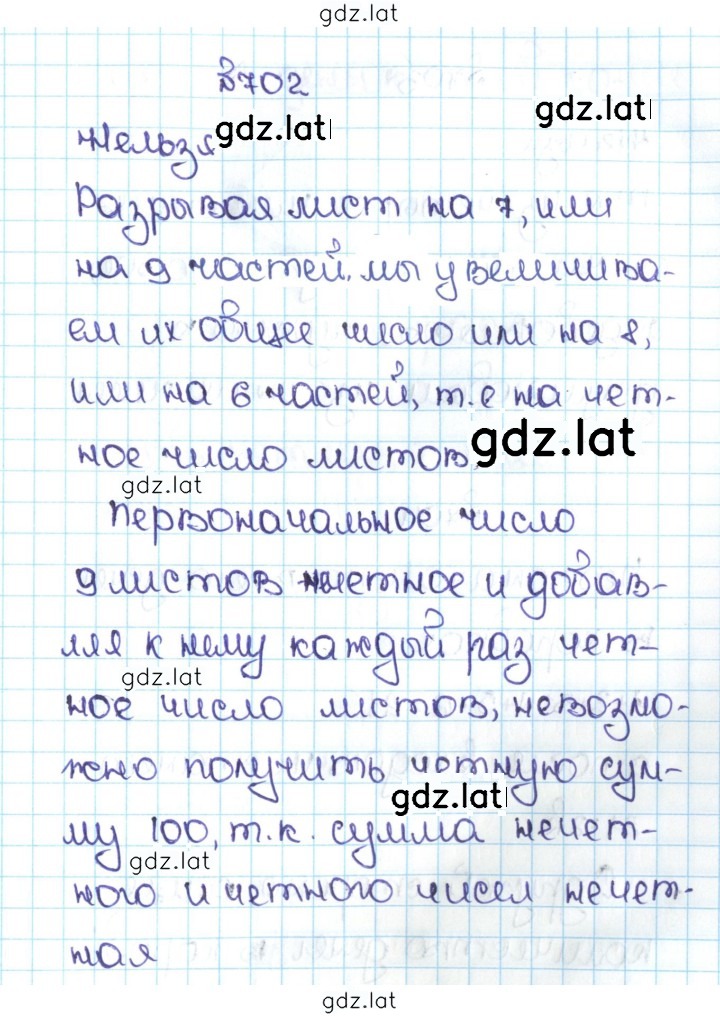 gdz.lat
№702
gdz.lat
Нельзя gdz.lat
Разрывая лист на 7, или
на 9 частей, мы увеличива-
ем их общее число или на 8,
или на 6 частей, т.е на чет-
ное число листов. gdz.lat
gdz.lat
Первоначальное число
9 листов нечетное и добав-
ляя к нему каждый раз чет-
gdz.lat
ное число листов, невозмо-
жно получить четную сум-
gdz.lat
му 100, т.к. сумма нечет-
gdz.lat
ного и четного чисел нечет-
ная
gdz.lat